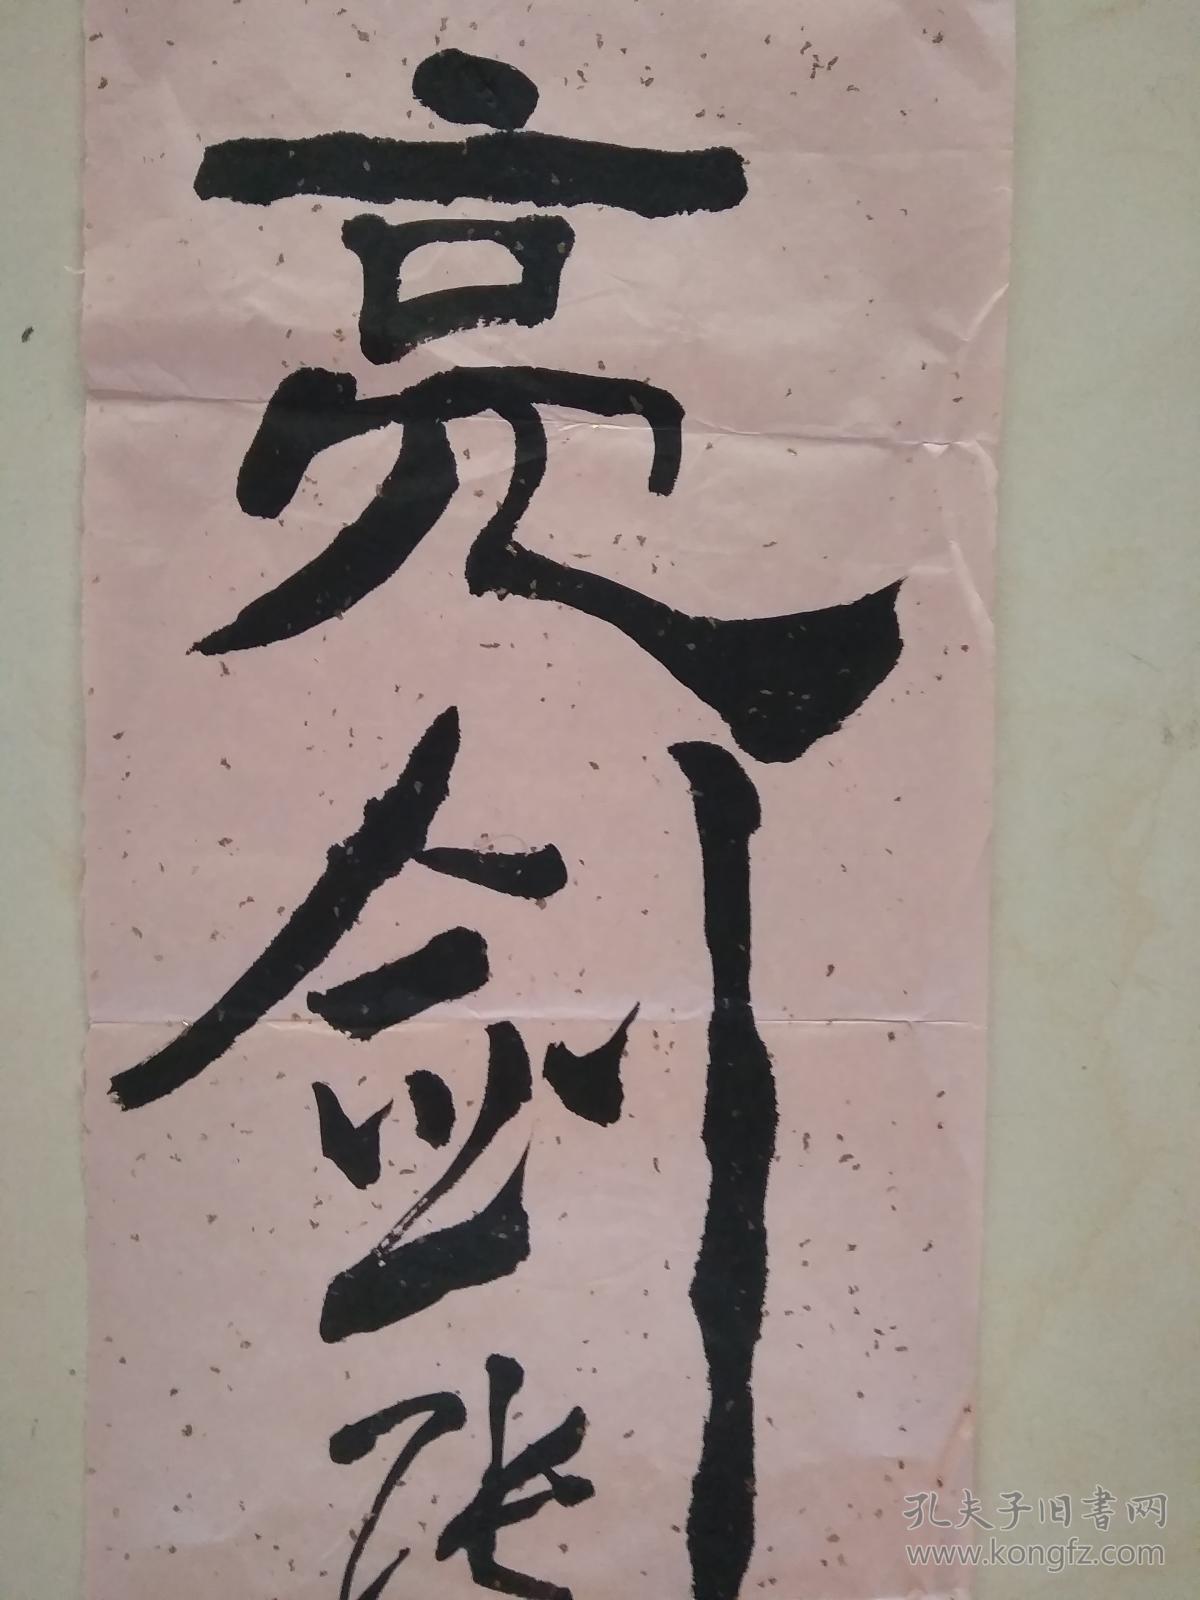 亮剑
张
孔夫子旧书网
www.kongfz.com